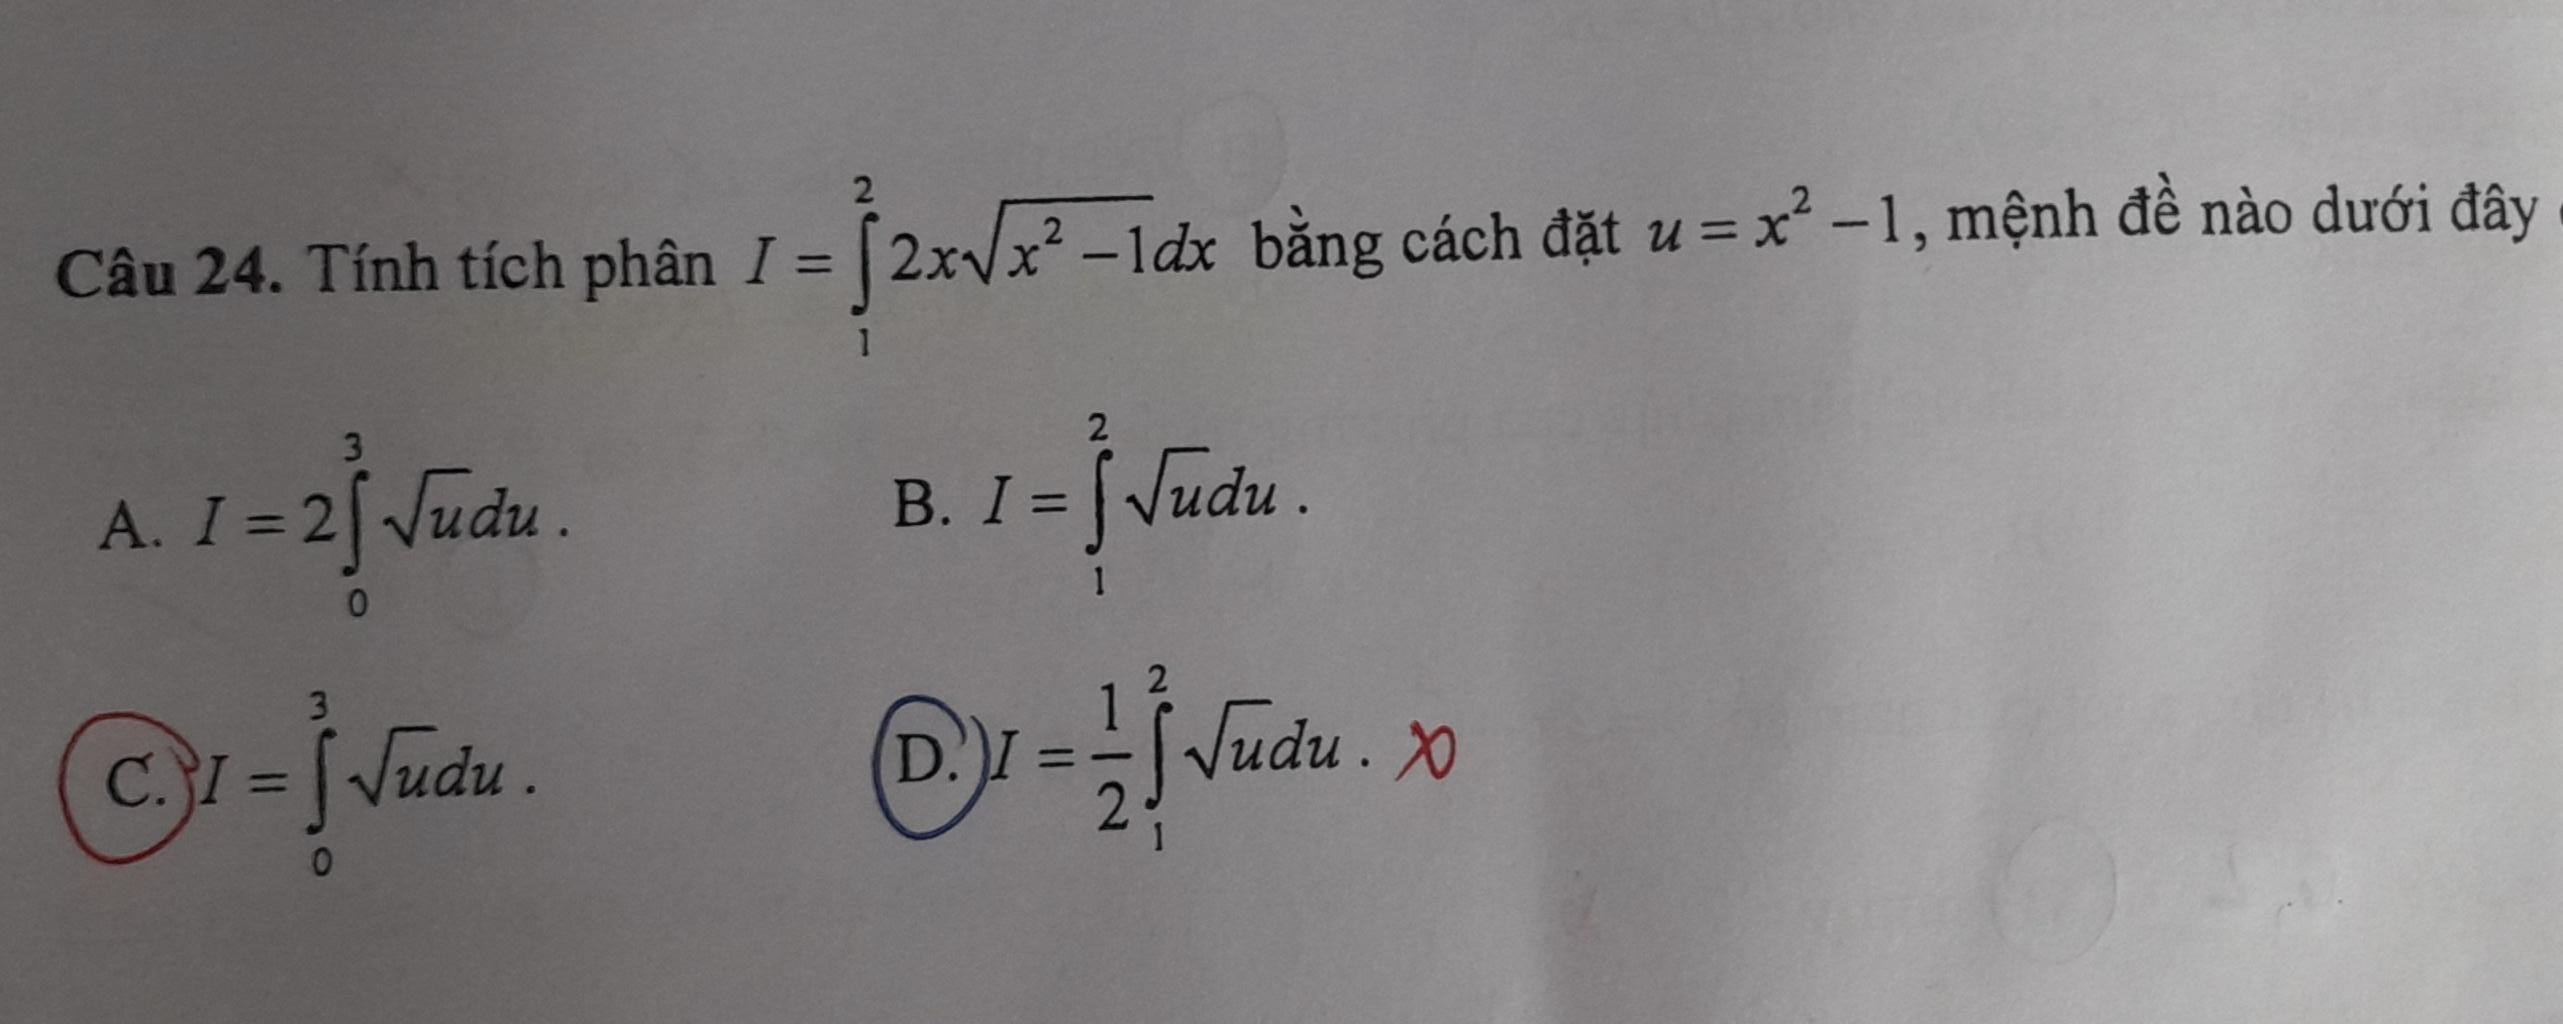 Câu 24. Tính tích phân $I = \int_{1}^{2} 2x\sqrt{x^2-1}dx$ bằng cách đặt $u = x^2-1$, mệnh đề nào dưới đây
A. $I = 2\int_{0}^{3} \sqrt{u}du$.
B. $I = \int_{1}^{2} \sqrt{u}du$.
C. $I = \int_{0}^{3} \sqrt{u}du$.
D. $I = \frac{1}{2}\int_{1}^{2} \sqrt{u}du$.